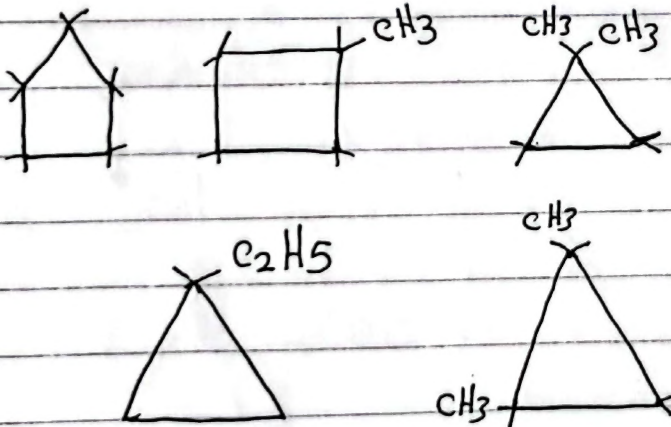 CH3
CH3 CH3
C2H5
CH3
CH3